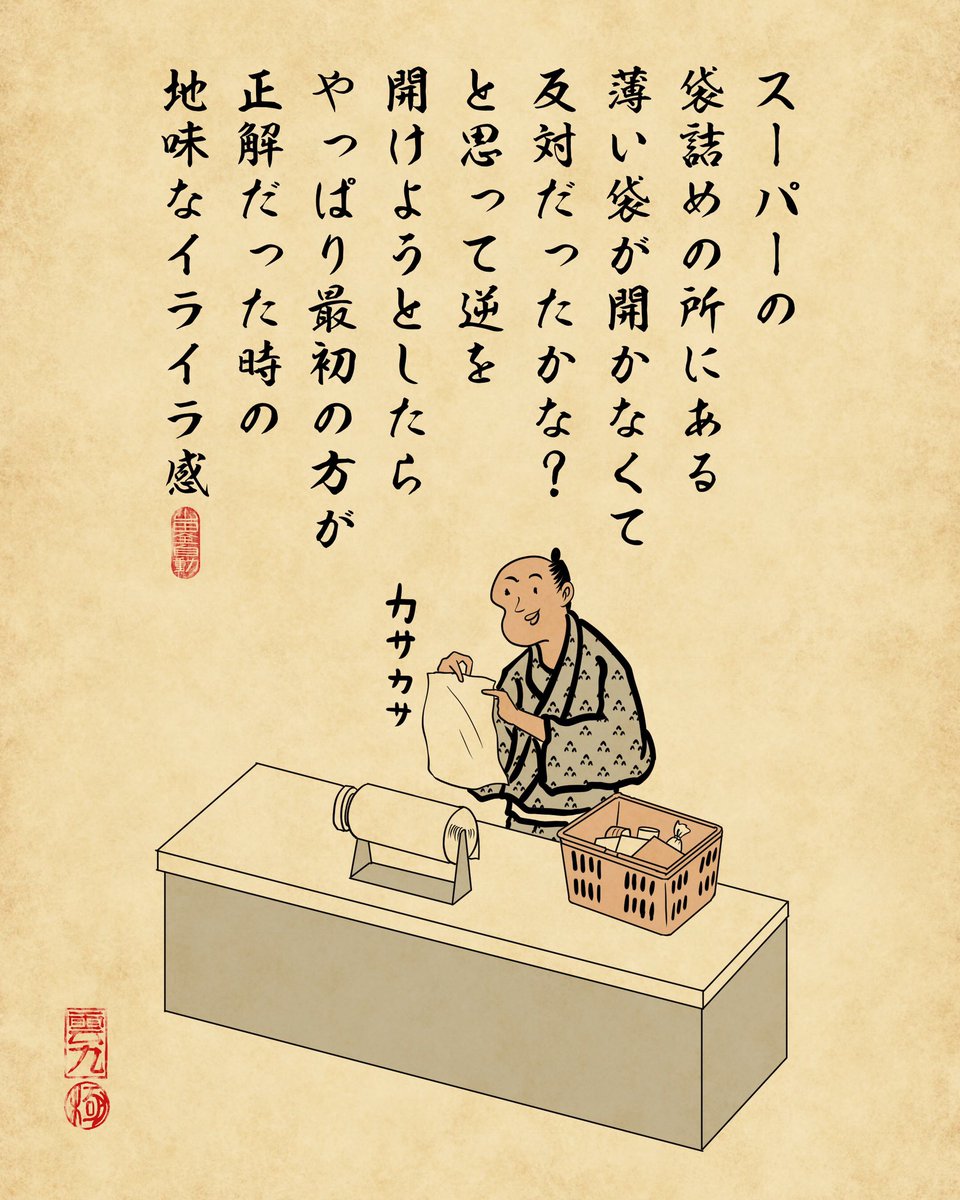 スーパーの
袋詰めの所にある
薄い袋が開かなくて
反対だったかな?
と思って逆を
開けようとしたら
やっぱり最初の方が
正解だった時の
地味なイライラ感
カサカサ